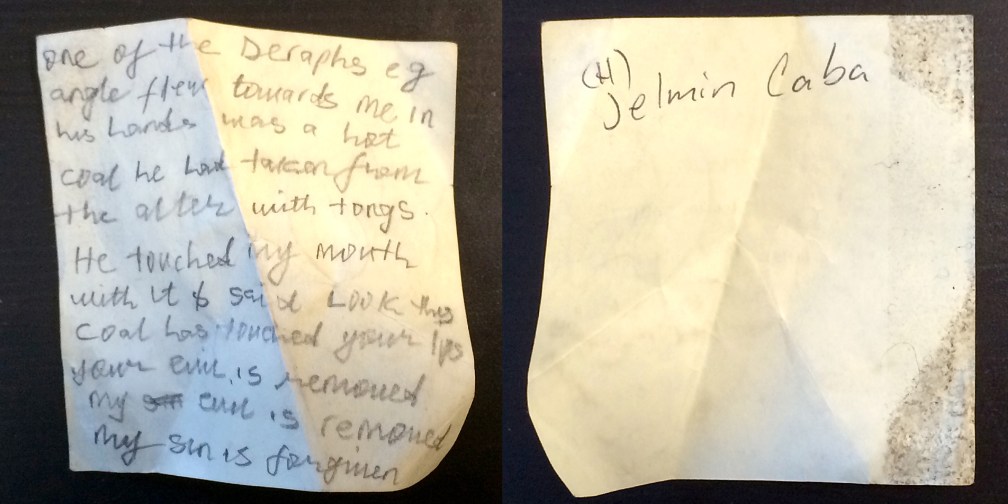 one of the Seraphs eg
angle flew towards me in
his hands was a hot
coal he had taken from
the alter with tongs.
He touched my mouth
with it & said Look this
coal has touched your lips
your evil is removed
my evil is removed
my sin is forgiven
(H)
Jelmin Caba